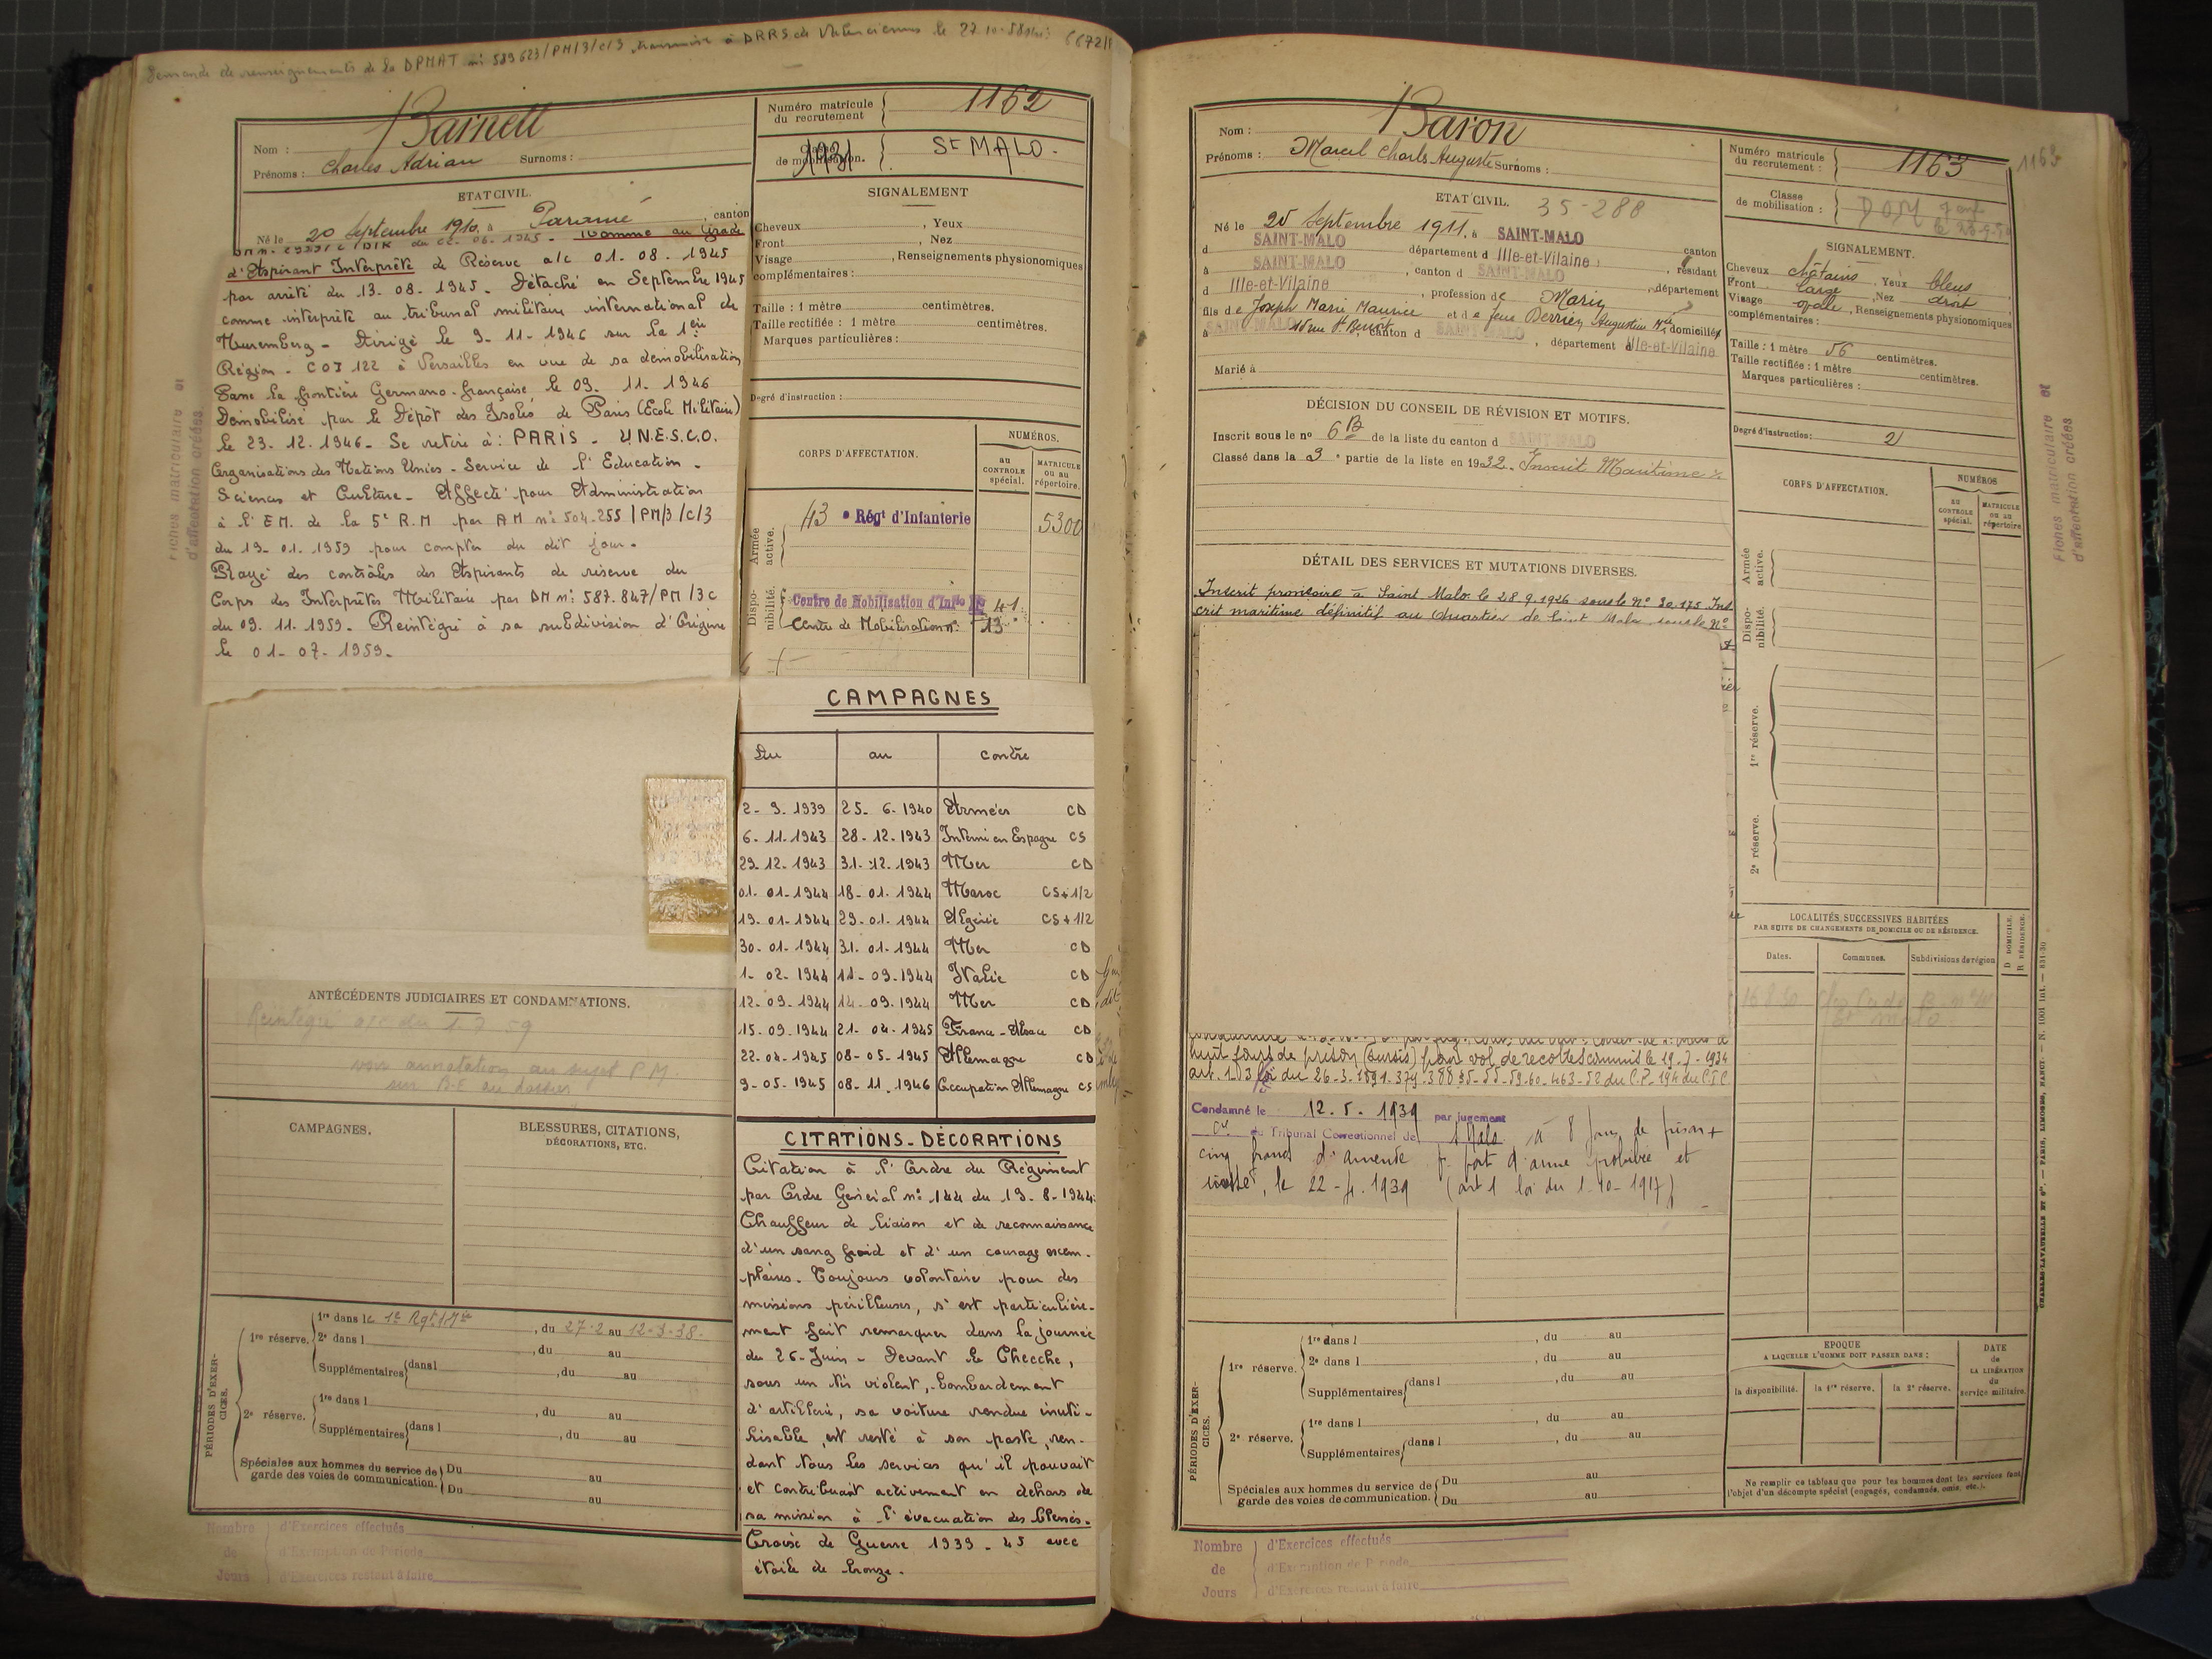 Demande de renseignements de la DPMAT n° 589623/PM/3/c/3 transmise à DRRS de Valenciennes le 27.10.58
Nom : Barnett
Prénoms : Charles Adrian Surnoms :
Numéro matricule du recrutement 1162
Classe de mobilisation. 1931 St MALO.
ETAT CIVIL.
Né le 20 Septembre 1910, à Paramé, canton
du 22. 06. 1945 - Nommé au Grade
d'Aspirant Interprète de Réserve a/c 01-08-1945
par arrêté du 13-08-1945. Détaché en Septembre 1945
comme interprète au tribunal militaire international de
Nuremberg - Dirigé le 9-11-1946 sur la 1ère
Région - COI 122 à Versailles en vue de sa démobilisation
Passe la frontière Germano-française le 09. 11. 1946
Démobilisé par le Dépôt des Isolés de Paris (Ecole Militaire)
le 23. 12. 1946 - Se retire à : PARIS - U.N.E.S.C.O.
Organisations des Nations Unies - Service de l'Education -
Sciences et Culture - Affecté pour Administration
à l'EM. de la 5e R.M par AM n° 504-255/PM/3/C/3
du 19-01-1959 pour compter du dit jour.
Rayé des contrôles des Aspirants de réserve du
Corps des Interprètes Militaire par DM n° 587.847/PM/3C
du 09. 11. 1959. Réintégré à sa subdivision d'Origine
le 01-07-1959.
Fiches matriculaire et
d'affectation créées
SIGNALEMENT
Cheveux , Yeux
Front , Nez
Visage , Renseignements physionomiques
complémentaires :
Taille : 1 mètre centimètres.
Taille rectifiée : 1 mètre centimètres.
Marques particulières :
Degré d'instruction :
CORPS D'AFFECTATION.
NUMÉROS.
au CONTROLE spécial.
MATRICULE ou au répertoire.
Armée active.
43e Régt d'Infanterie 5300
Dispo- nibilité.
Centre de Mobilisation d'Infie N° 41
Centre de Mobilisation n° 13
CAMPAGNES
Du au contre
2-9-1939 25-6-1940 Armées CD
6-11-1943 28-12-1943 Interné en Espagne CS
29-12-1943 31-12-1943 Mer CD
01-01-1944 18-01-1944 Maroc CS+1/2
19-01-1944 29-01-1944 Algérie CS+1/2
30-01-1944 31-01-1944 Mer CD
1-02-1944 11-09-1944 Italie CD
12-09-1944 14-09-1944 Mer CD
15-09-1944 21-04-1945 France-Alsace CD
22-04-1945 08-05-1945 Allemagne CD
9-05-1945 08-11-1946 Occupation Allemagne CS
CITATIONS-DÉCORATIONS
Citation à l'Ordre du Régiment
par Ordre Général n° 144 du 19-8-1944:
Chauffeur de liaison et de reconnaissance
d'un sang froid et d'un courage exem-
plaires. Toujours volontaire pour des
missions périlleuses, s'est particulière-
ment fait remarquer dans la journée
du 26-Juin - Devant le Checche,
sous un tir violent, bombardement
d'artillerie, sa voiture rendue inuti-
lisable, est resté à son poste, ren-
dant tous les services qu'il pouvait
et contribuant activement en dehors de
sa mission à l'évacuation des blessés.
Croix de Guerre 1939-45 avec
étoile de bronze.
ANTÉCÉDENTS JUDICIAIRES ET CONDAMNATIONS.
Réintégré du 1.7.59
voir annotation au sujet PM
sur B.E au dossier
CAMPAGNES.
BLESSURES, CITATIONS, DÉCORATIONS, ETC.
PÉRIODES D'EXER- CICES.
1re réserve. 1re dans le 1er Rgt , du 27-2 au 12-3-38.
2e dans l , du au
Supplémentaires dans l , du au
2e réserve. 1re dans l , du au
Supplémentaires dans l , du au
Spéciales aux hommes du service de garde des voies de communication. Du au
Du au
Nombre de Jours
d'Exercices effectués
d'Exemption de Période
d'Exercices restant à faire
Nom : Baron
Prénoms : Marcel Charles Auguste Surnoms :
Numéro matricule du recrutement : 1163
1163
Classe de mobilisation :
ETAT CIVIL. 35-288
Né le 25 Septembre 1911, à SAINT-MALO
d SAINT-MALO département d Ille-et-Vilaine canton
à SAINT-MALO, canton d SAINT-MALO, résidant
d Ille-et-Vilaine, profession de Marin, département
fils de Joseph Marie Maurice et de feue Derrien Augustine Mie domiciliés
à SAINT-MALO rue St Benoît, canton d SAINT-MALO, département d Ille-et-Vilaine
Marié à
SIGNALEMENT.
Cheveux châtains, Yeux bleus
Front large, Nez droit
Visage ovale, Renseignements physionomiques
complémentaires :
Taille : 1 mètre 56 centimètres.
Taille rectifiée : 1 mètre centimètres.
Marques particulières :
Degré d'instruction : 2
DÉCISION DU CONSEIL DE RÉVISION ET MOTIFS.
Inscrit sous le n° 6B de la liste du canton d SAINT MALO
Classé dans la 3e partie de la liste en 1932. Inscrit Maritime
DÉTAIL DES SERVICES ET MUTATIONS DIVERSES.
Inscrit provisoire à Saint Malo le 28.9.1926 sous le N° 30.175 Ins
crit maritime définitif au Quartier de Saint Malo sous le N°
huit jours de prison (sursis) pour vol de récoltes commis le 19-7-1934
art. 1.3 loi du 26-3-1891. 379-388 55-59-60-463-52 du C.P-194 du C.I.C
Condamné le 12.5.1939 par jugement
Ct du Tribunal Correctionnel de S Malo à 8 jours de prison +
cinq francs d'amende p. port d'arme prohibée et
le 22-4.1939 (art 1 loi du 1-10-1917)
CORPS D'AFFECTATION.
NUMÉROS
au CONTROLE spécial.
MATRICULE ou au répertoire
Armée active.
Dispo- nibilité.
1re réserve.
2e réserve.
LOCALITÉS SUCCESSIVES HABITÉES
PAR SUITE DE CHANGEMENTS DE DOMICILE OU DE RÉSIDENCE.
Dates. Communes. Subdivisions de région
D DOMICILE. R RÉSIDENCE.
Fiches matriculaire et
d'affectation créées
EPOQUE
A LAQUELLE L'HOMME DOIT PASSER DANS :
la disponibilité. la 1re réserve. la 2e réserve.
DATE de LA LIBÉRATION du service militaire.
Ne remplir ce tableau que pour les hommes dont les services font
l'objet d'un décompte spécial (engagés, condamnés, omis, etc.).
PÉRIODES D'EXER- CICES.
1re réserve. 1re dans l , du au
2e dans l , du au
Supplémentaires dans l , du au
2e réserve. 1re dans l , du au
Supplémentaires dans l , du au
Spéciales aux hommes du service de garde des voies de communication. Du au
Du au
Nombre de Jours
d'Exercices effectués
d'Exemption de Période
d'Exercices restant à faire
CHARLES-LAVAUZELLE ET Cie. — PARIS, LIMOGES, NANCY. — N. 1001 int. — 831-30